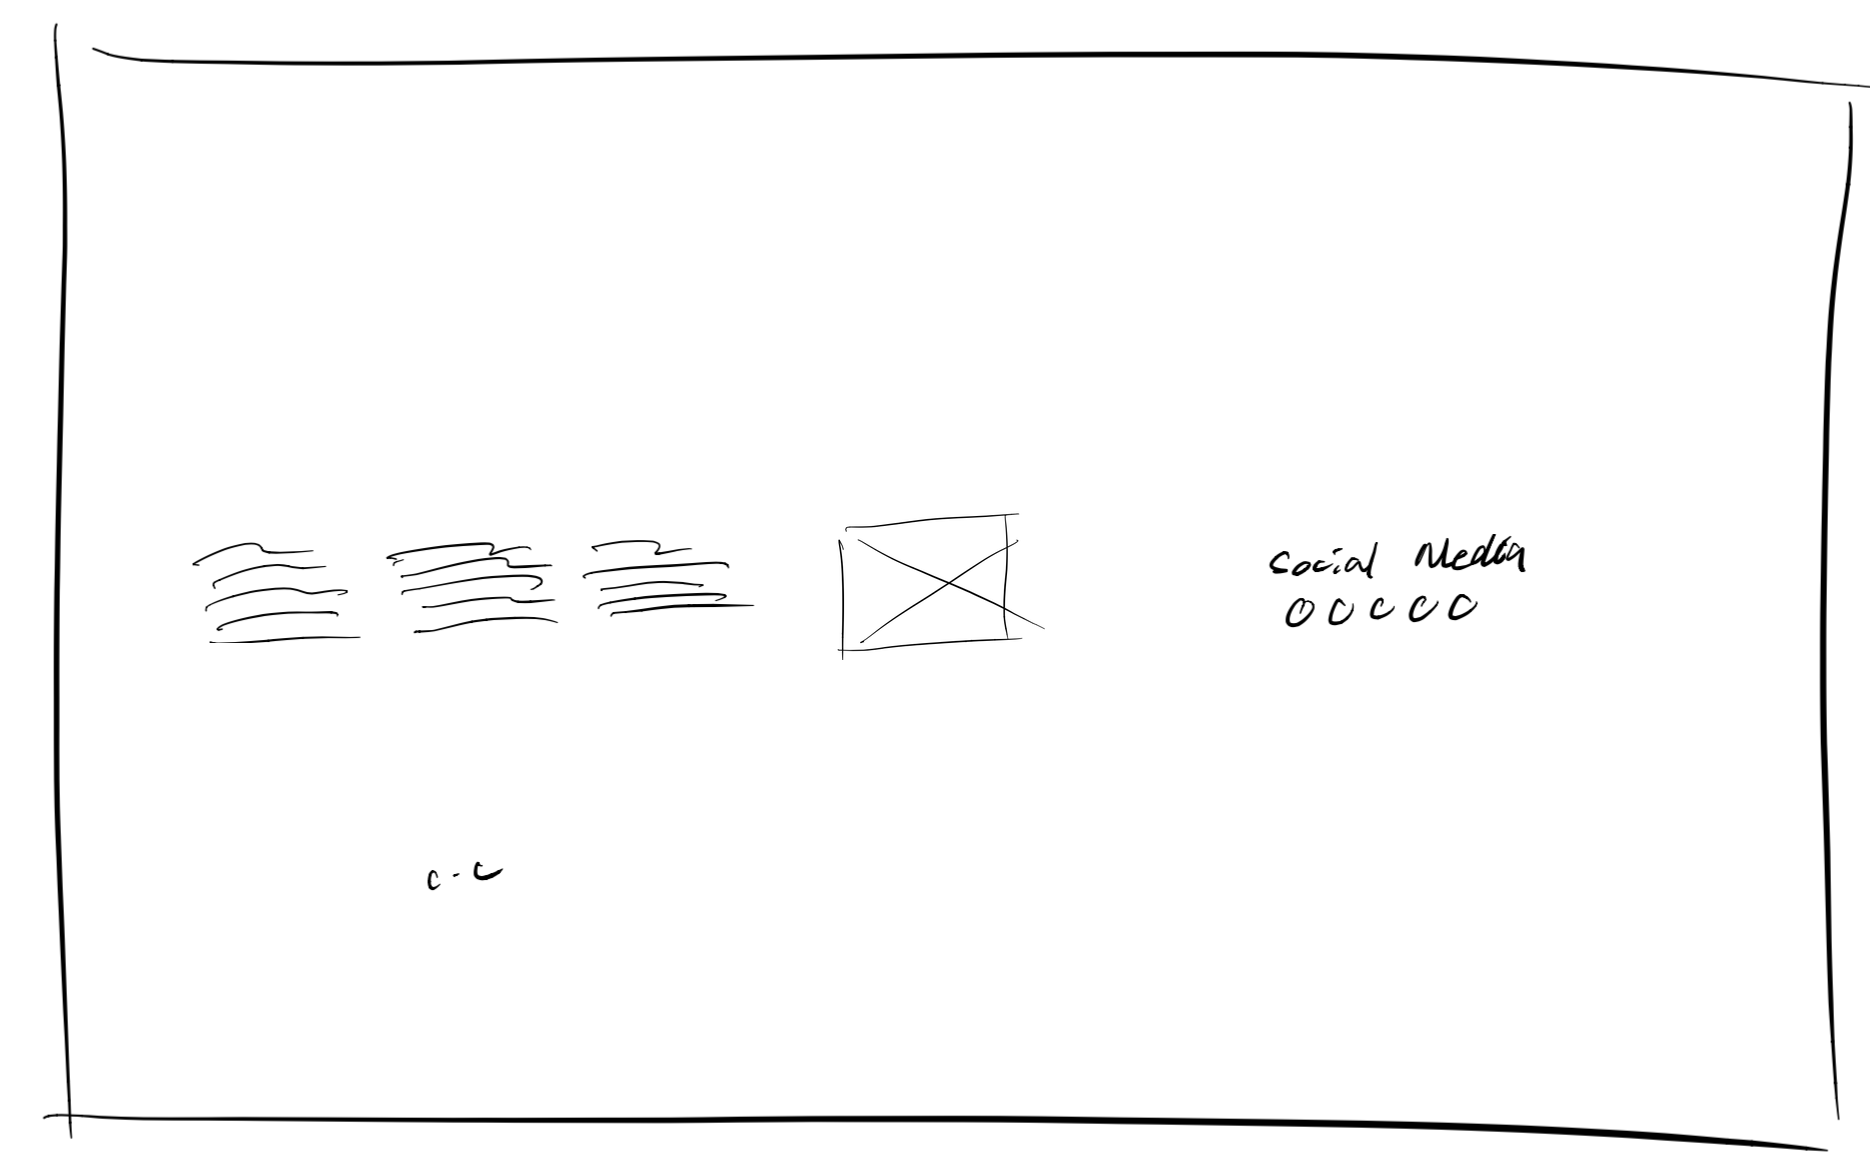 Social Media